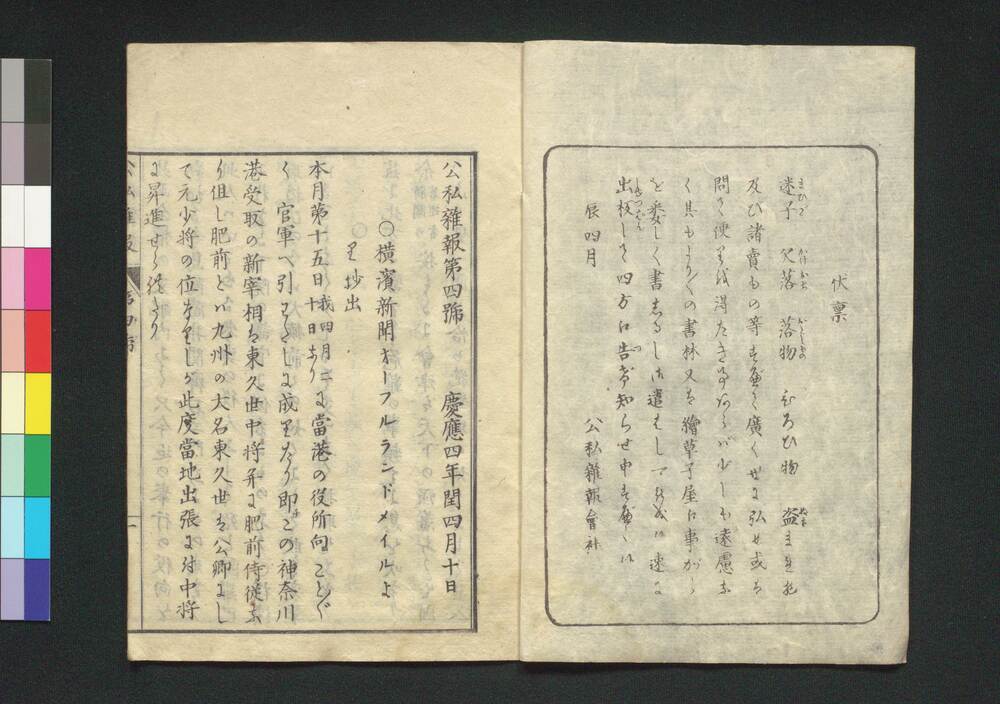 伏稟
迷子 欠落 落物 ひろひ物 盗まれ物
まひご かけおち おとしもの
及び諸賣もの等すべて廣く世に弘め或は
問く便りを得たき事あらバ少しも遠慮な
く其もよりの書林又は繪草子屋に事がら
を委しく書しるし御遣はし
出板して四方に告げ知らせ申すべく候
しゆつぱん
辰四月
公私雜報會社
公私雜報第四號 慶應四年閏四月十日
○横濱新聞オーフルランドメイルよ
り抄出
本月第十五日我四月三十日なりに當港の役所向ことごと
く官軍へ引わたしに成りたり即この神奈川
港受取の新宰相は東久世中将并に肥前侍従な
り但し肥前とハ九州の大名東久世は公卿にし
て元少将の位なりしが此度當地出張に付中将
に昇進せられたり
公私雜報 第四号 一